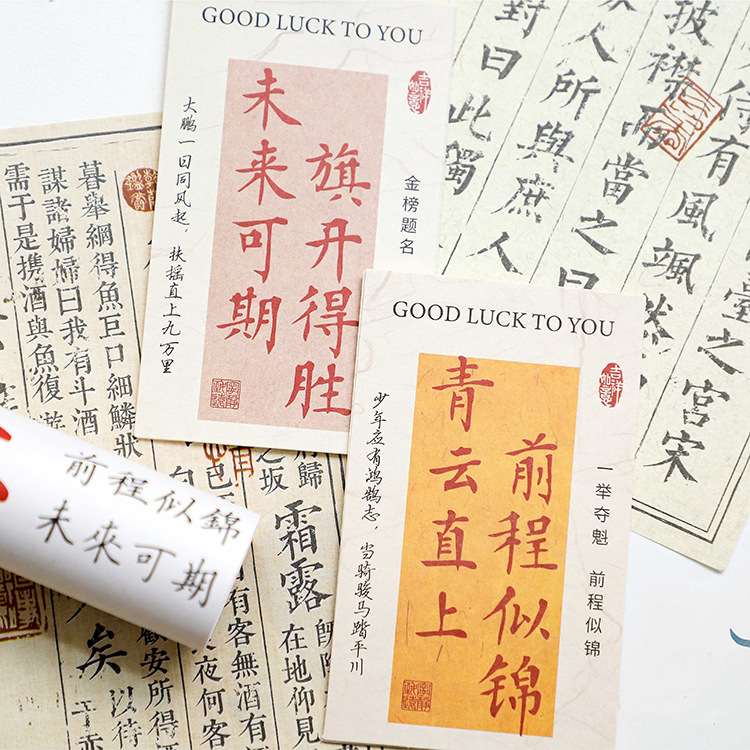 GOOD LUCK TO YOU
旗开得胜
未来可期
金榜题名
大鹏一日同风起,扶摇直上九万里
GOOD LUCK TO YOU
前程似锦
青云直上
一举夺魁 前程似锦
少年应有鸿鹄志,当骑骏马踏平川
前程似錦
未來可期
暮舉網得魚巨口細鱗狀
謀諸婦婦曰我有斗酒
需于是携酒與魚復游
霜露
在地仰見
有客無酒有
夜何客
顧安所得酒
矣
以待
臺之宮宋
侍有風颯
披襟而當之曰
人所與庶人
對曰此獨